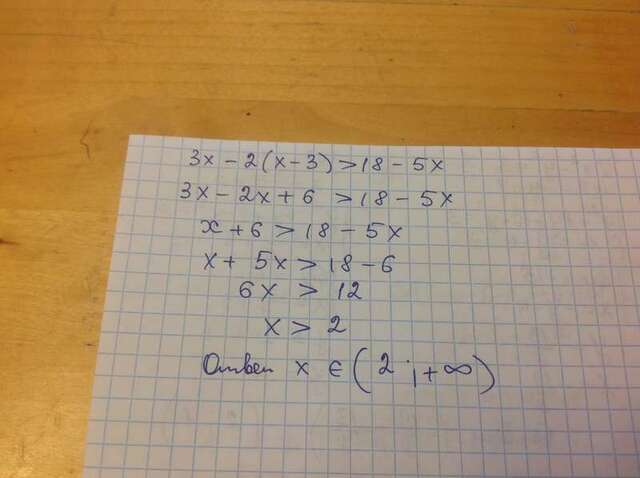 3x - 2(x - 3) > 18 - 5x
3x - 2x + 6 > 18 - 5x
x + 6 > 18 - 5x
x + 5x > 18 - 6
6x > 12
x > 2
Ответ x ∈ (2 ; +∞)